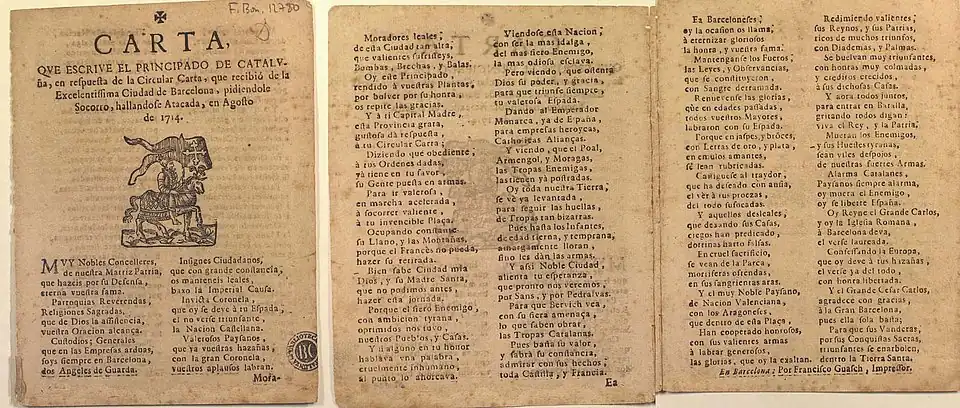 F. Bon. 12780
CARTA,
QVE ESCRIVE EL PRINCIPADO DE CATALV-
ña, en respuesta de la Circular Carta, que recibiò de la
Excelentissima Ciudad de Barcelona, pidiendole
Socorro, hallandose Atacada, en Agosto
de 1714.
MVY Nobles Concelleres,
de nuestra Matriz Patria,
que hazeis por su Defensa,
eterna vuestra fama.
Parroquias Reverendas,
Religiones Sagradas,
que de Dios la assistencia,
vuestra Oracion alcança.
Custodios; Generales
que en las Empresas arduas,
soys siempre en Barcelona,
dos Angeles de Guarda.
Insignes Ciudadanos,
que con grande constancia,
os manteneis leales,
baxo la Imperial Causa.
Invicta Coronela,
que oy se deve à tu Espada,
el no verse triunfante,
la Nacion Castellana.
Valerosos Paysanos,
que ya vuestras hazañas,
con la gran Coronela,
vuestros aplausos labran.
Mora-
Moradores leales,
de esta Ciudad tan alta,
que valientes sufristeys,
Bombas, Brechas, y Balas.
Oy este Principado,
rendido à vuestras Plantas,
por bolver por su honra,
os repite las gracias.
Y à ti Capital Madre,
esta Provincia grata,
gustosa dà respuesta,
à tu Circular Carta;
Diziendo que obediente,
à tus Ordenes dadas,
yà tiene en tu favor,
su Gente puesta en armas.
Para ir valerosa,
en marcha acelerada,
à socorrer valiente,
à tu invencible Plaça.
Ocupando constante
su Llano, y las Montañas,
porque el Francès no pueda,
hazer su retirada.
Bien sabe Ciudad mia
Dios, y su Madre Santa,
que no podimos antes,
hazer esta jornada.
Porque el fiero Enemigo,
con ambicion tyrana,
optimidos nos tuvo,
nuestros Pueblos, y Casas.
Y si alguno en tu honor
hablava una palabra,
cruelmente inhumano,
al punto lo ahorcava.
Viendose esta Nacion,
con ser la mas idalga,
del mas fiero Enemigo,
la mas odiosa esclava.
Pero viendo, que ostenta
Dios su poder, y gracia,
para que triunfe siempre,
tu valerosa Espada.
Dando al Emperador
Monarca, ya de España,
para empresas heroycas,
Catholicas Alianças.
Y viendo, que el Poal,
Armengol, y Moragas,
las Tropas Enemigas,
las tienen yà postradas.
Oy toda nuestra Tierra,
se vè ya levantada,
para seguir las huellas,
de Tropas tan bizarras.
Pues hasta los Infantes,
de edad tierna, y temprana,
amargamente lloran,
sino les dàn las armas.
Y assi Noble Ciudad,
alienta tu esperança,
que pronto nos veremos,
por Sans, y por Pedralvas.
Para que Bervich vea,
con su fiera amenaça,
lo que saben obrar,
las Tropas Catalanas.
Pues hasta su valor,
y sabrà su constancia,
admirar con sus hechos,
toda Castilla, y Francia.
Ea
Ea Barceloneses,
oy la ocasion os llama,
à eternizar gloriosos
la honra, y vuestra fama.
Manteganse los Fueros,
las Leyes, y Observancias,
que se constituyeron,
con Sangre derramada.
Renuevense las glorias,
que en edades passadas,
todos vuestros Mayores,
labraron con su Espada.
Porque en jaspes, y brôces,
con Letras de oro, y plata,
en emulos amantes,
sè lean rubricadas.
Castiguese al traydor,
que ha deseado con ansia,
el vèr à tus proezas,
del todo sufocadas.
Y aquellos desleales,
que dexando sus Casas,
ciegos han predicado,
doctrinas harto falsas.
En cruel sacrificio,
se vean de la Parca,
mortiferas ofrendas,
en sus sangrientas aras.
Y el muy Noble Paysano,
de Nacion Valenciana,
con los Aragoneses,
que dentro de esta Plaça,
Han cooperado honrosos,
con sus valientes armas
à labrar generosos,
las glorias, que oy la exaltan.
Redimiendo valientes,
sus Reynos, y sus Patrias,
ricos de muchos triunfos,
con Diademas, y Palmas.
Se buelvan muy triunfantes,
con honras muy colmadas,
y creditos crecidos,
à sus dichosas Casas.
Y aora todos juntos,
para entrar en Batalla,
gritando todos digan
viva el Rey, y la Patria,
Mueran los Enemigos,
y sus Huestes tyranas,
sean viles despojos,
de nuestras fuertes Armas.
Alarma Catalanes,
Paysanos siempre alarma,
oy muera el Enemigo,
oy se liberte España.
Oy Reyne el Grande Carlos,
y oy la Iglesia Romana,
à Barcelona deva,
el verse laureada.
Confessando la Europa,
que oy deve à tus hazañas,
el verse ya del todo,
con honra libertada.
Y el Grande Cesar Carlos,
agradece con gracias,
à la Gran Barcelona,
pues ella sola basta;
Para que sus Vanderas,
por sus Conquistas Sacras,
triunfantes se enarbolen,
dentro la Tierra Santa.
En Barcelona: Por Francisco Guasch, Impressor.